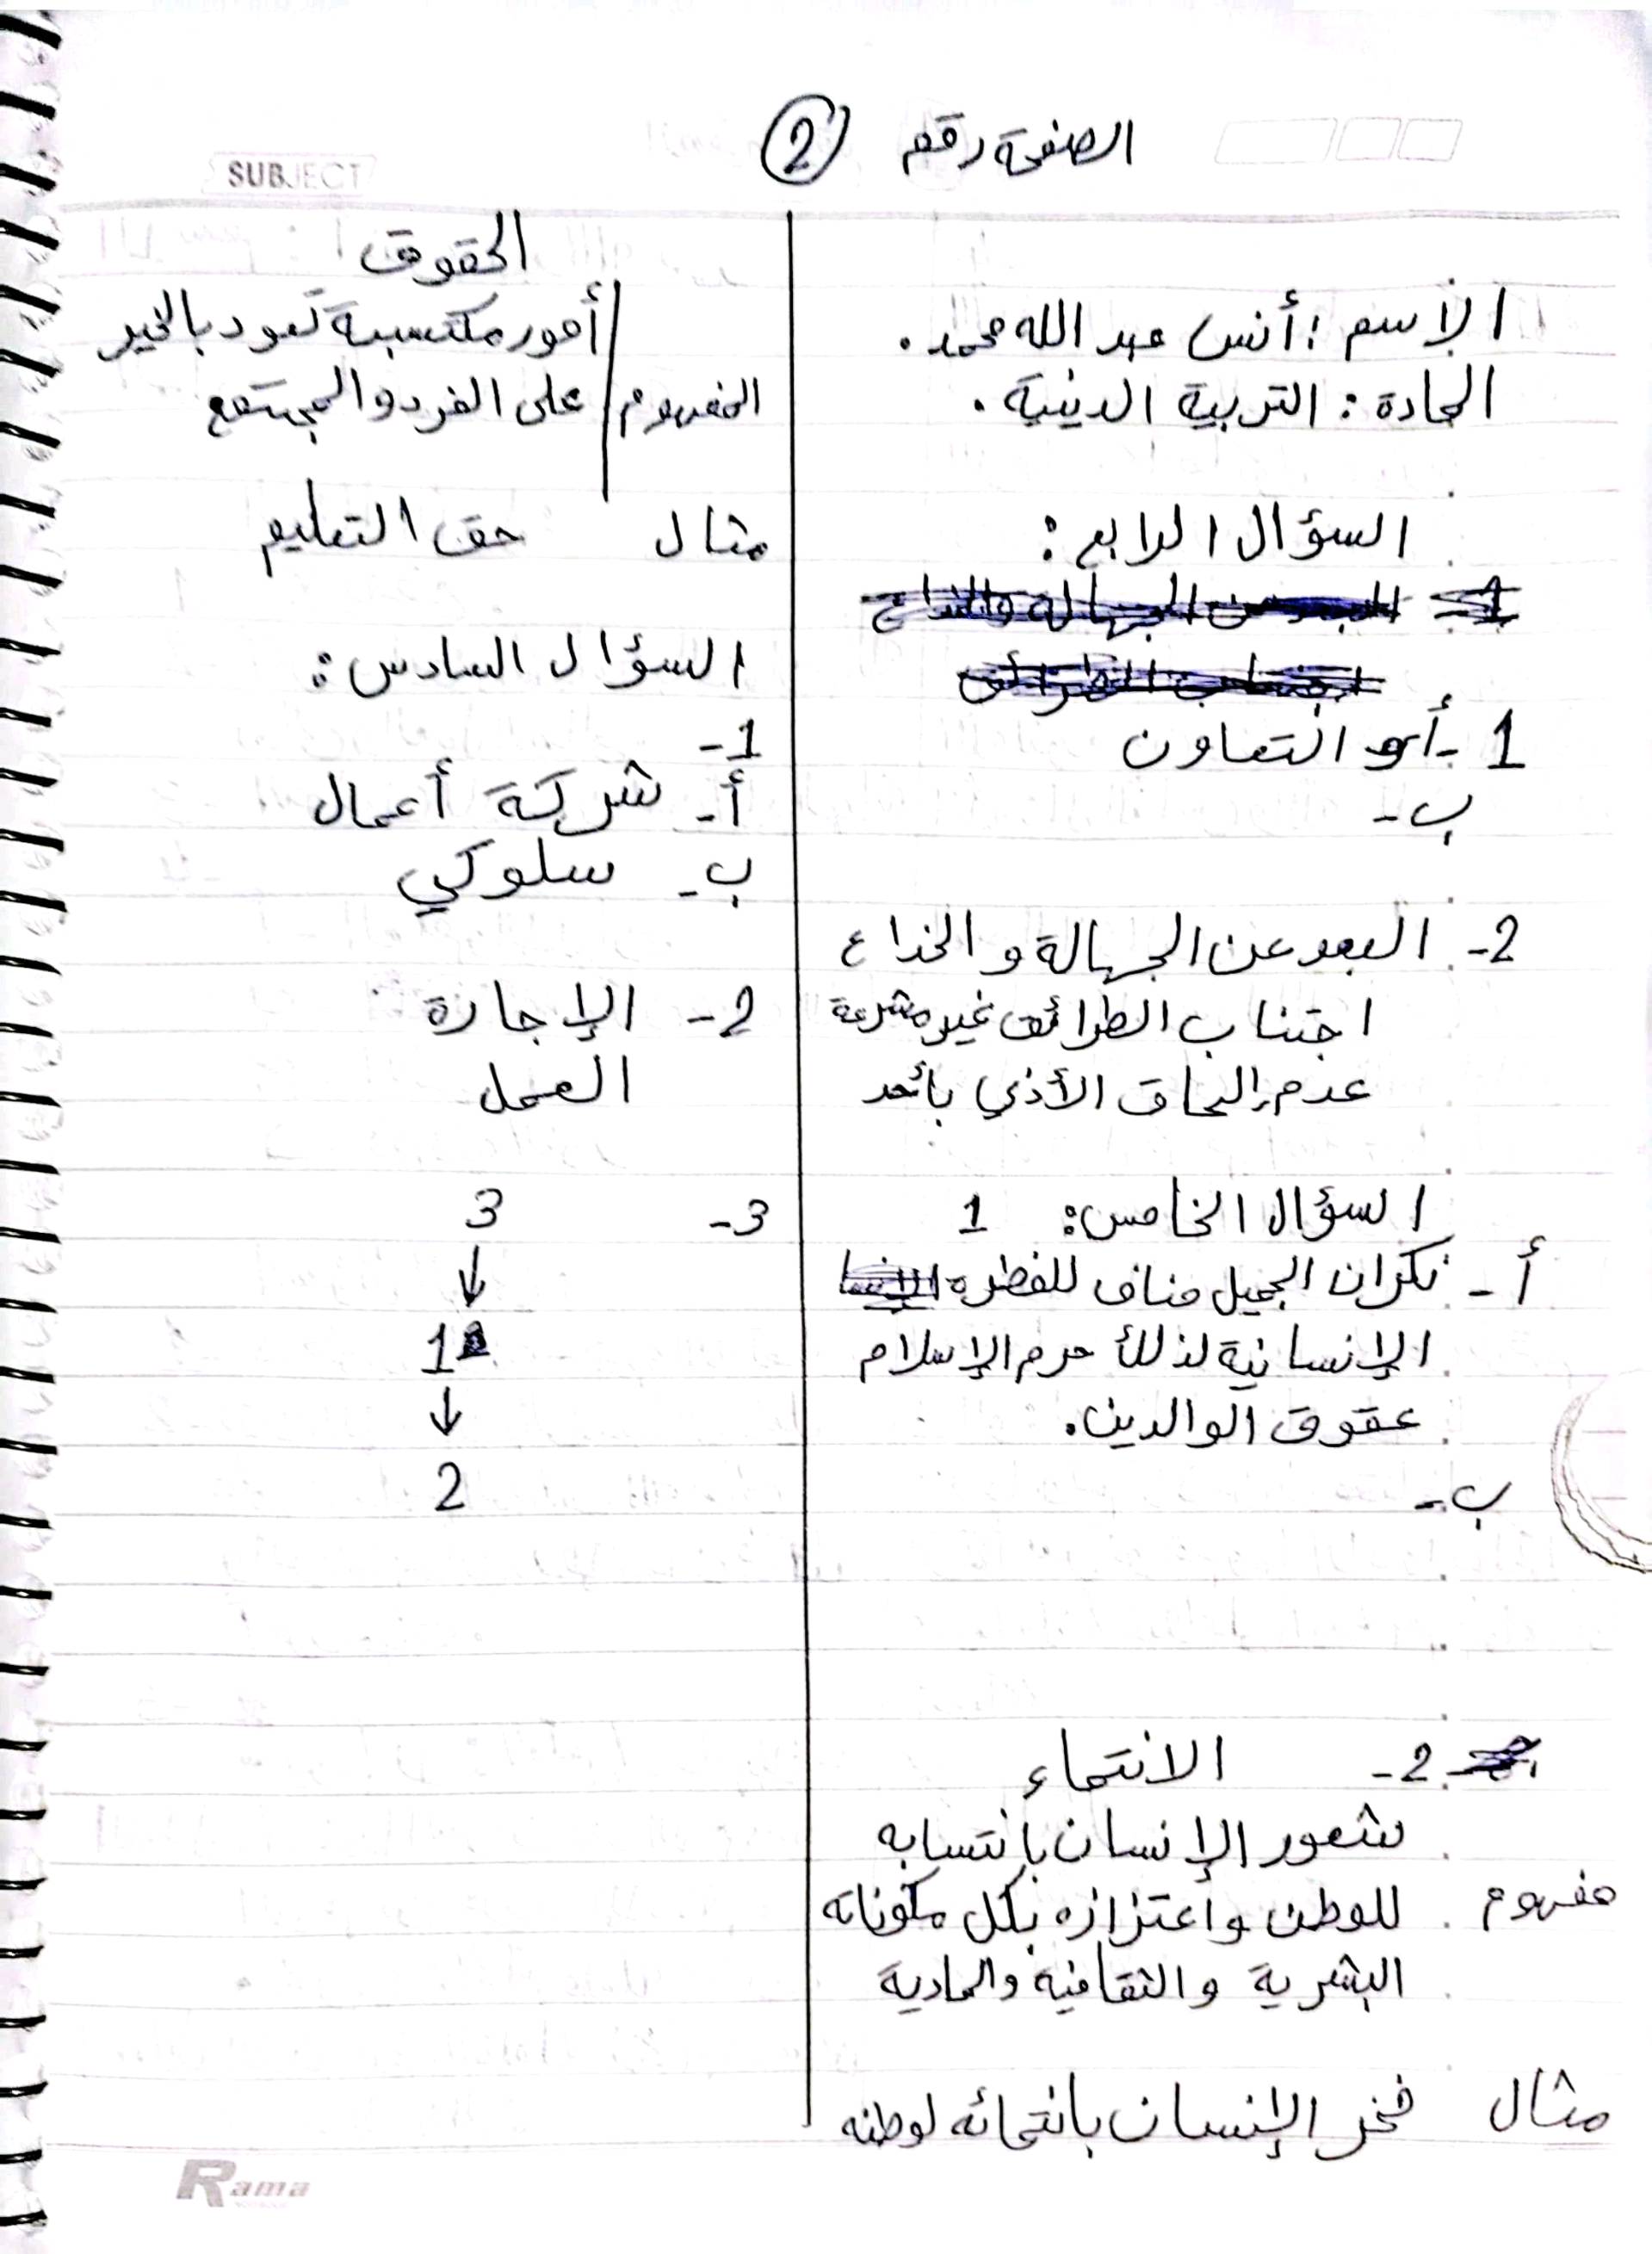 الصفحة رقم 2
SUBJECT
الإسم : أنس عبد الله محمد.
المادة : التربية الدينية.
السؤال الرابع :
1 - أ- التعاون
ب-
2- البعد عن الجهالة و الخداع
اجتناب الطرائق غير مشرعة
عدم إلحاق الأذى بأحد
السؤال الخامس: 1
أ- نكران الجميل مناف للفطرة
الإنسانية لذلك حرم الإسلام
عقوق الوالدين.
ب-
2- الانتماء
شعور الإنسان بانتسابه
مفهوم للوطن واعتزازه بكل مكوناته
البشرية والثقافية والمادية
مثال فخر الإنسان بانتمائه لوطنه
الحقوق
أمور مكتسبة تعود بالخير
المفهوم على الفرد والمجتمع
مثال حق التعليم
السؤال السادس :
1-
أ- شركة أعمال
ب- سلوكي
2- الإجارة
العمل
3- 3
↓
1
↓
2
Rama